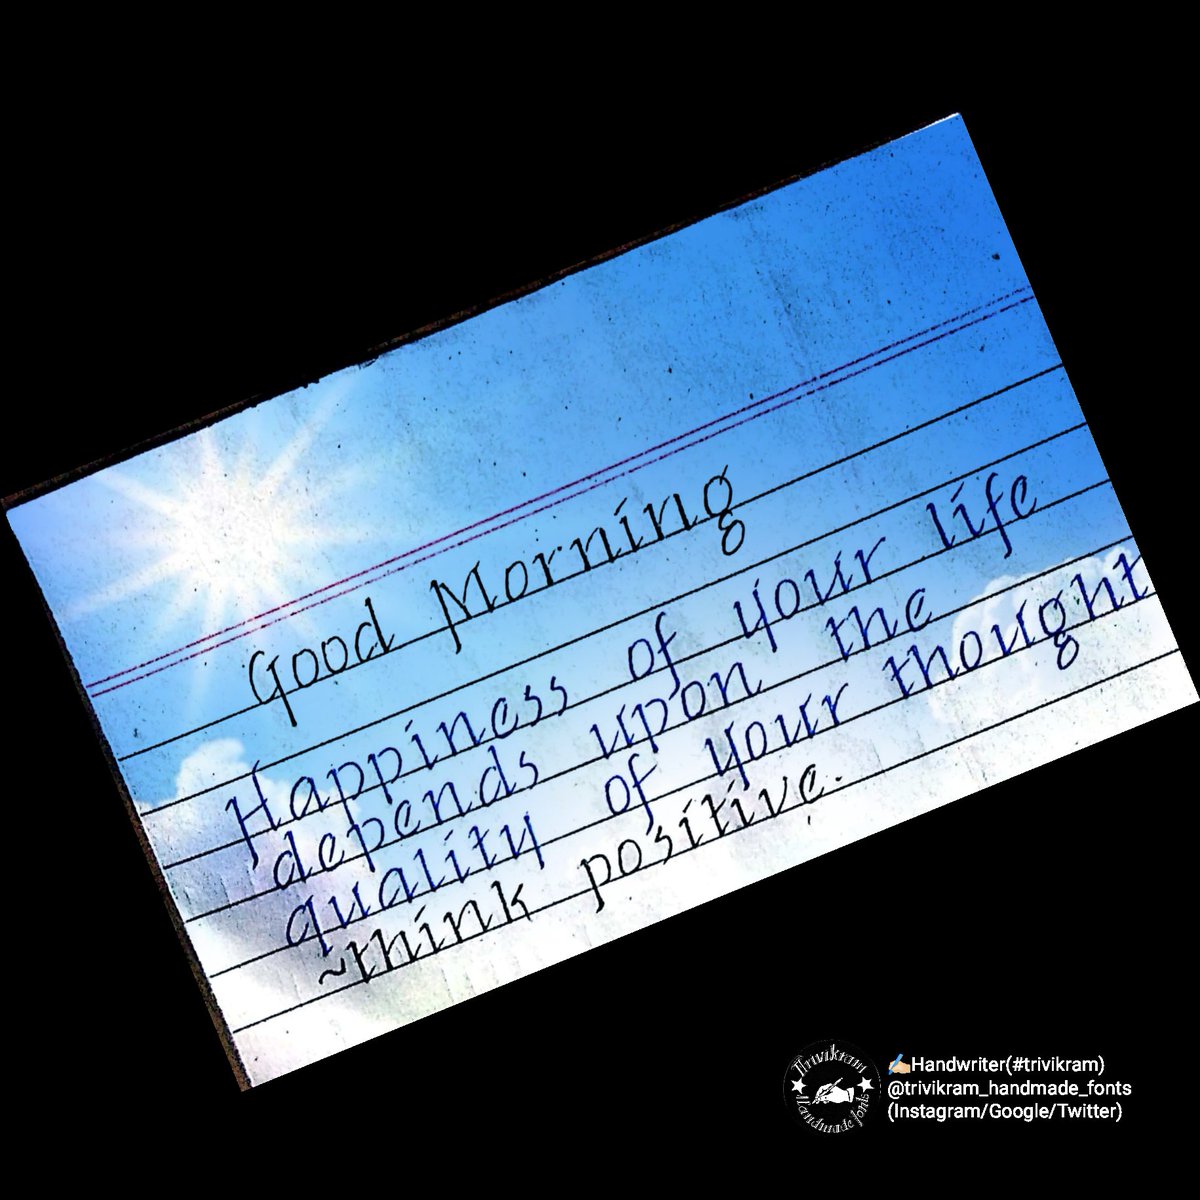 Good Morning
Happiness of your life
depends upon the
quality of your thought
~think positive.
Trivikram
Handmade fonts
✍🏻Handwriter(#trivikram)
@trivikram_handmade_fonts
(Instagram/Google/Twitter)